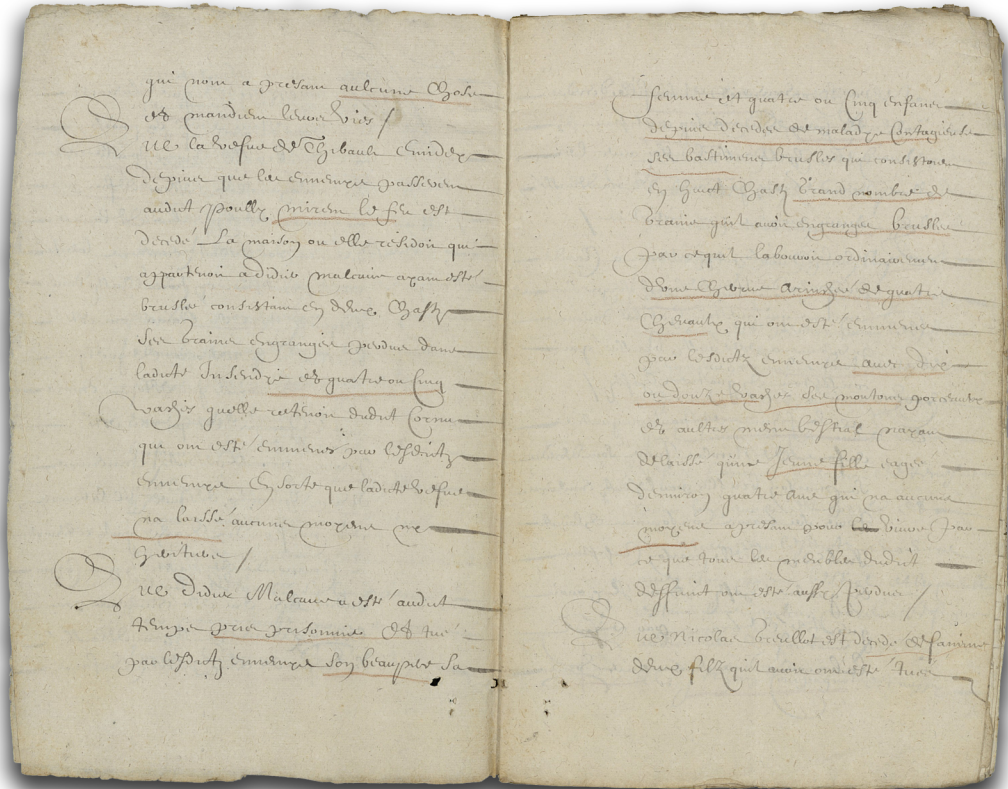 qui nont a presant aulcune Chose
et mandient leurs vies /
Que la vefve de Thibault
depuis que les ennemys passerent
audit Poully mirent le feu est
decedé La maison ou elle residoit qui
appartenoit a didier malcuire ayant esté
brusle consistant en deux Chastz
ses grains engrangés perdus dans
ladite Insendye et quatre ou Cinq
vaches quelle retenoit dudit Cornu
qui ont esté emmenés par lesdictz
ennemys En sorte que ladicte vefve
na laissé aucuns moyens ny
heritiers /
Que Didier Malcuire a esté audit
temps pris prisonnier et tué
par lesdictz ennemys son beaupere sa
femme et quatre ou Cinq enfans
depuis decedes de maladye Contagieuse
ses bastimens brusles qui consistoient
en huict Chastz grand nombre de
grains quil avoit engrangés brusles
par ce quil labouroit ordinairement
dune Cherue de quatre
Chevaulx qui ont esté emmenés
par lesdictz ennemys avec dix
ou douze vaches ses moutons porceaux
et aultres menu bestial nayant
delaissé qune Jeune fille eagée
denviron quatre ans qui na aucuns
moyens a presant pour vivre par
ce que tous les meubles dudit
deffunct ont esté aussy perdus /
Que Nicolas breullot est decedé de famine
deux filz quil avoit ont esté tués